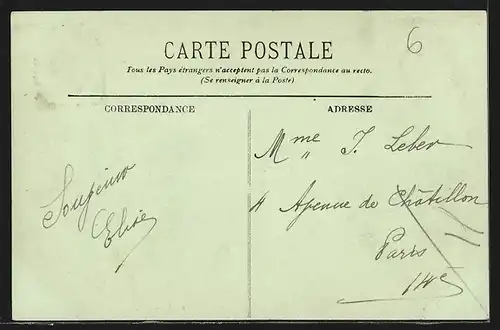 6
CARTE POSTALE
Tous les Pays étrangers n'acceptent pas la Correspondance au recto.
(Se renseigner à la Poste)
CORRESPONDANCE
ADRESSE
Elise
Mme J. Leber
11 Avenue de Châtillon
Paris
14e